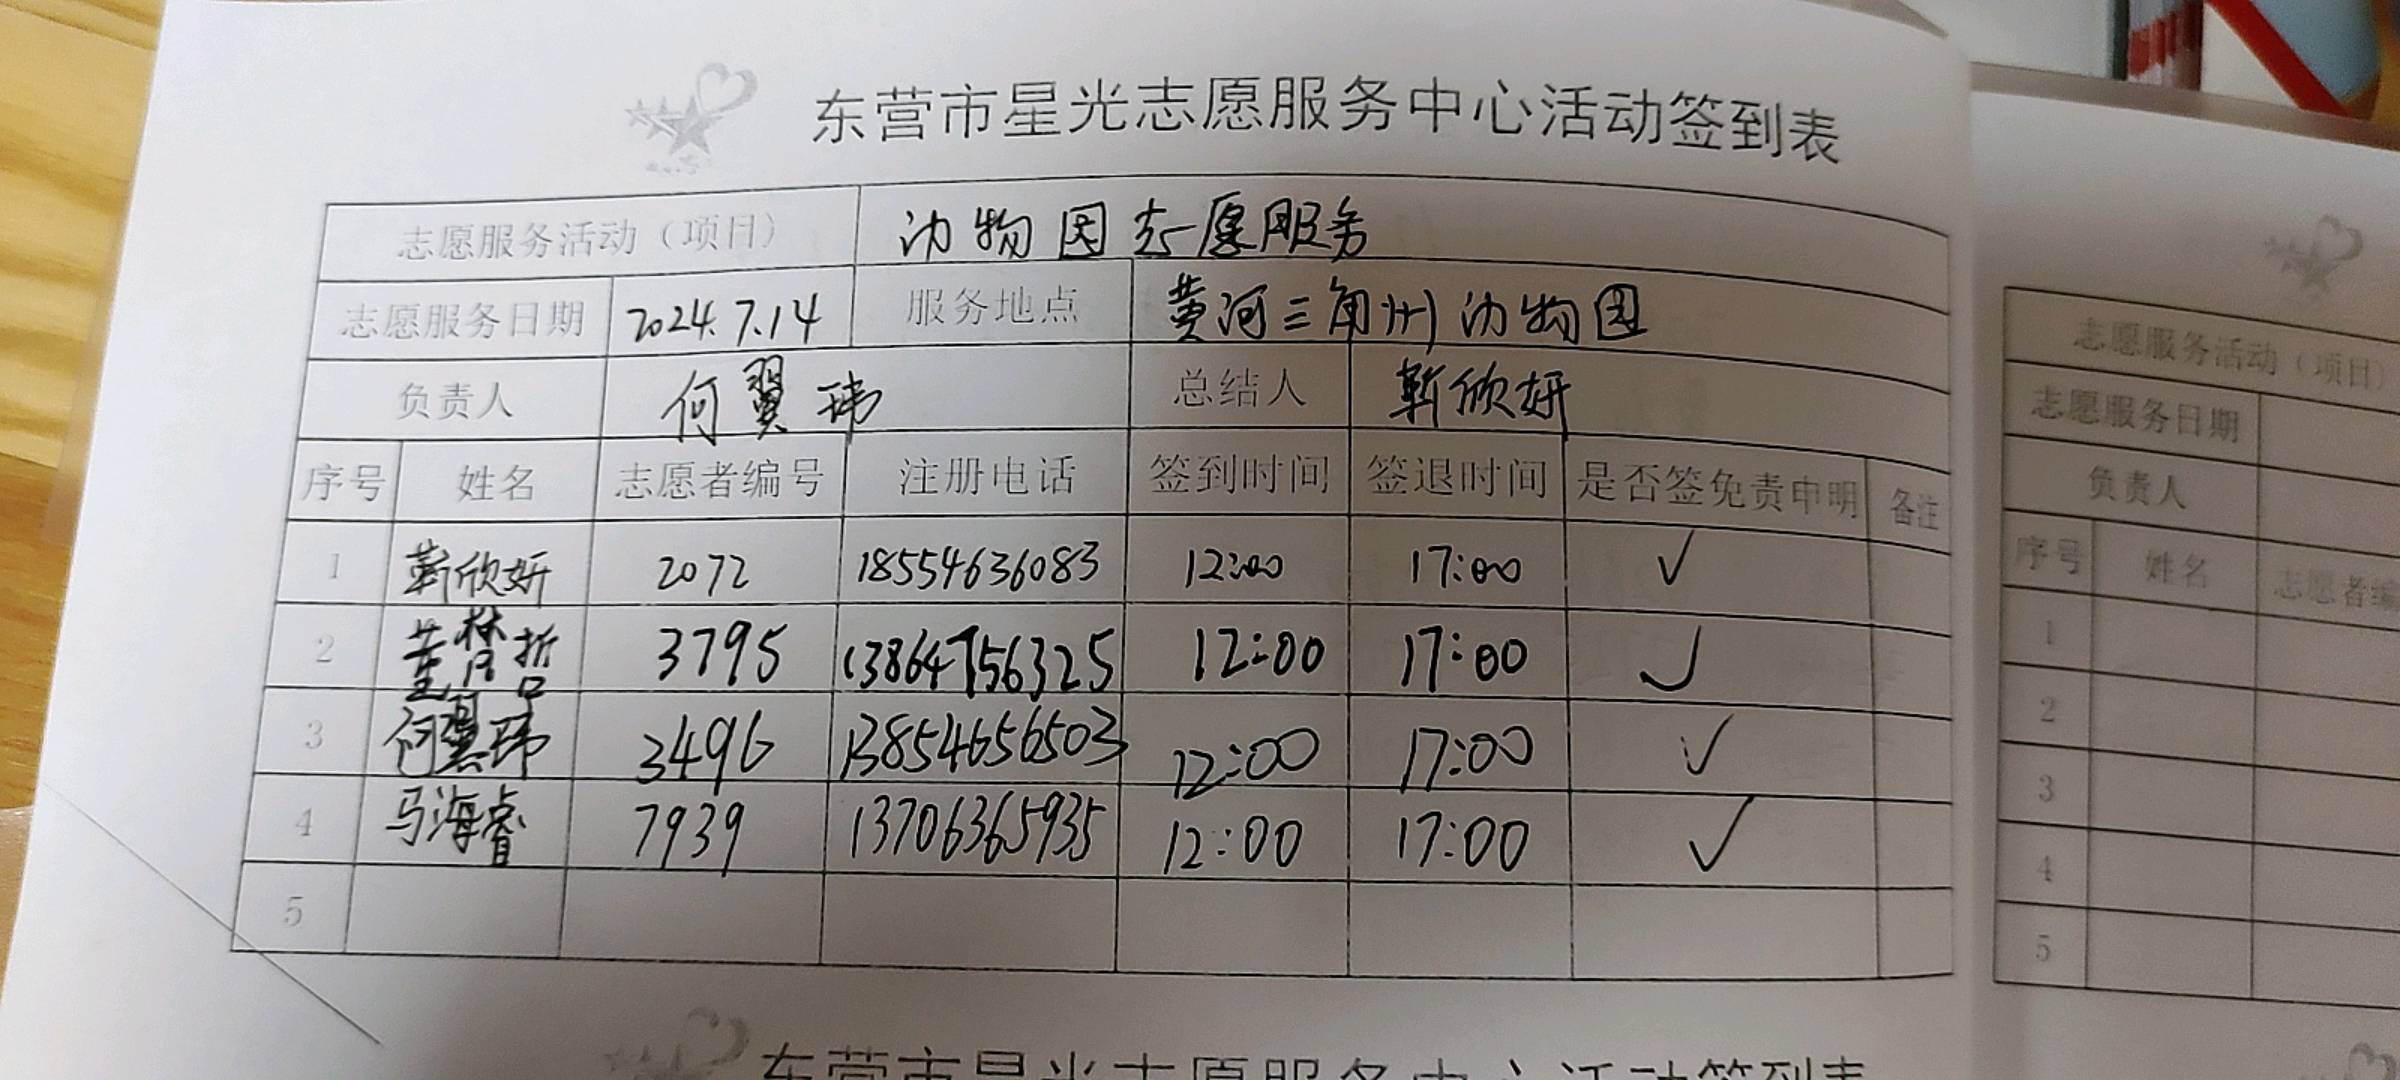 东营市星光志愿服务中心活动签到表
志愿服务活动（项目） 动物园志愿服务
志愿服务日期 2024.7.14 服务地点 黄河三角州动物园
负责人 何翼玮 总结人 靳欣妍
序号 姓名 志愿者编号 注册电话 签到时间 签退时间 是否签免责申明 备注
1 靳欣妍 2072 18554636083 12:00 17:00 ✓
2 3795 13864756325 12:00 17:00 ✓
3 何翼玮 3496 13854656503 12:00 17:00 ✓
4 马海睿 7939 13706365935 12:00 17:00 ✓
5
志愿服务活动（项目）
志愿服务日期
负责人
序号 姓名 志愿者编
1
2
3
4
5
东营市星光志愿服务中心活动签到表